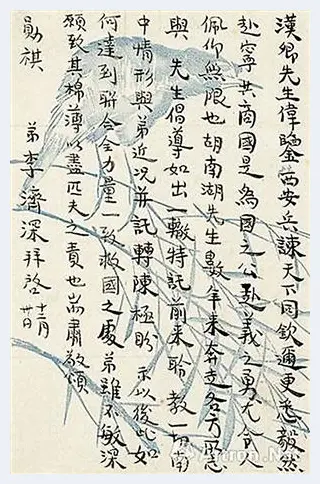 漢卿先生偉鑒西安兵諫天下同欽邇更悉毅然
赴寧共商國是為國之公赴義之勇尤令人
佩仰無限也胡南湖先生數年來奔走各方
與 先生倡導如出一轍特託前來聆教一切南
中情形與弟近況并託轉陳極盼 示以後此如
何達到聯合全力量一致救國之處弟雖不敏深
願致其棉薄以盡匹夫之責也耑肅敬頌
勛祺
弟李濟深拜啓 十二月廿日
Artron.Net